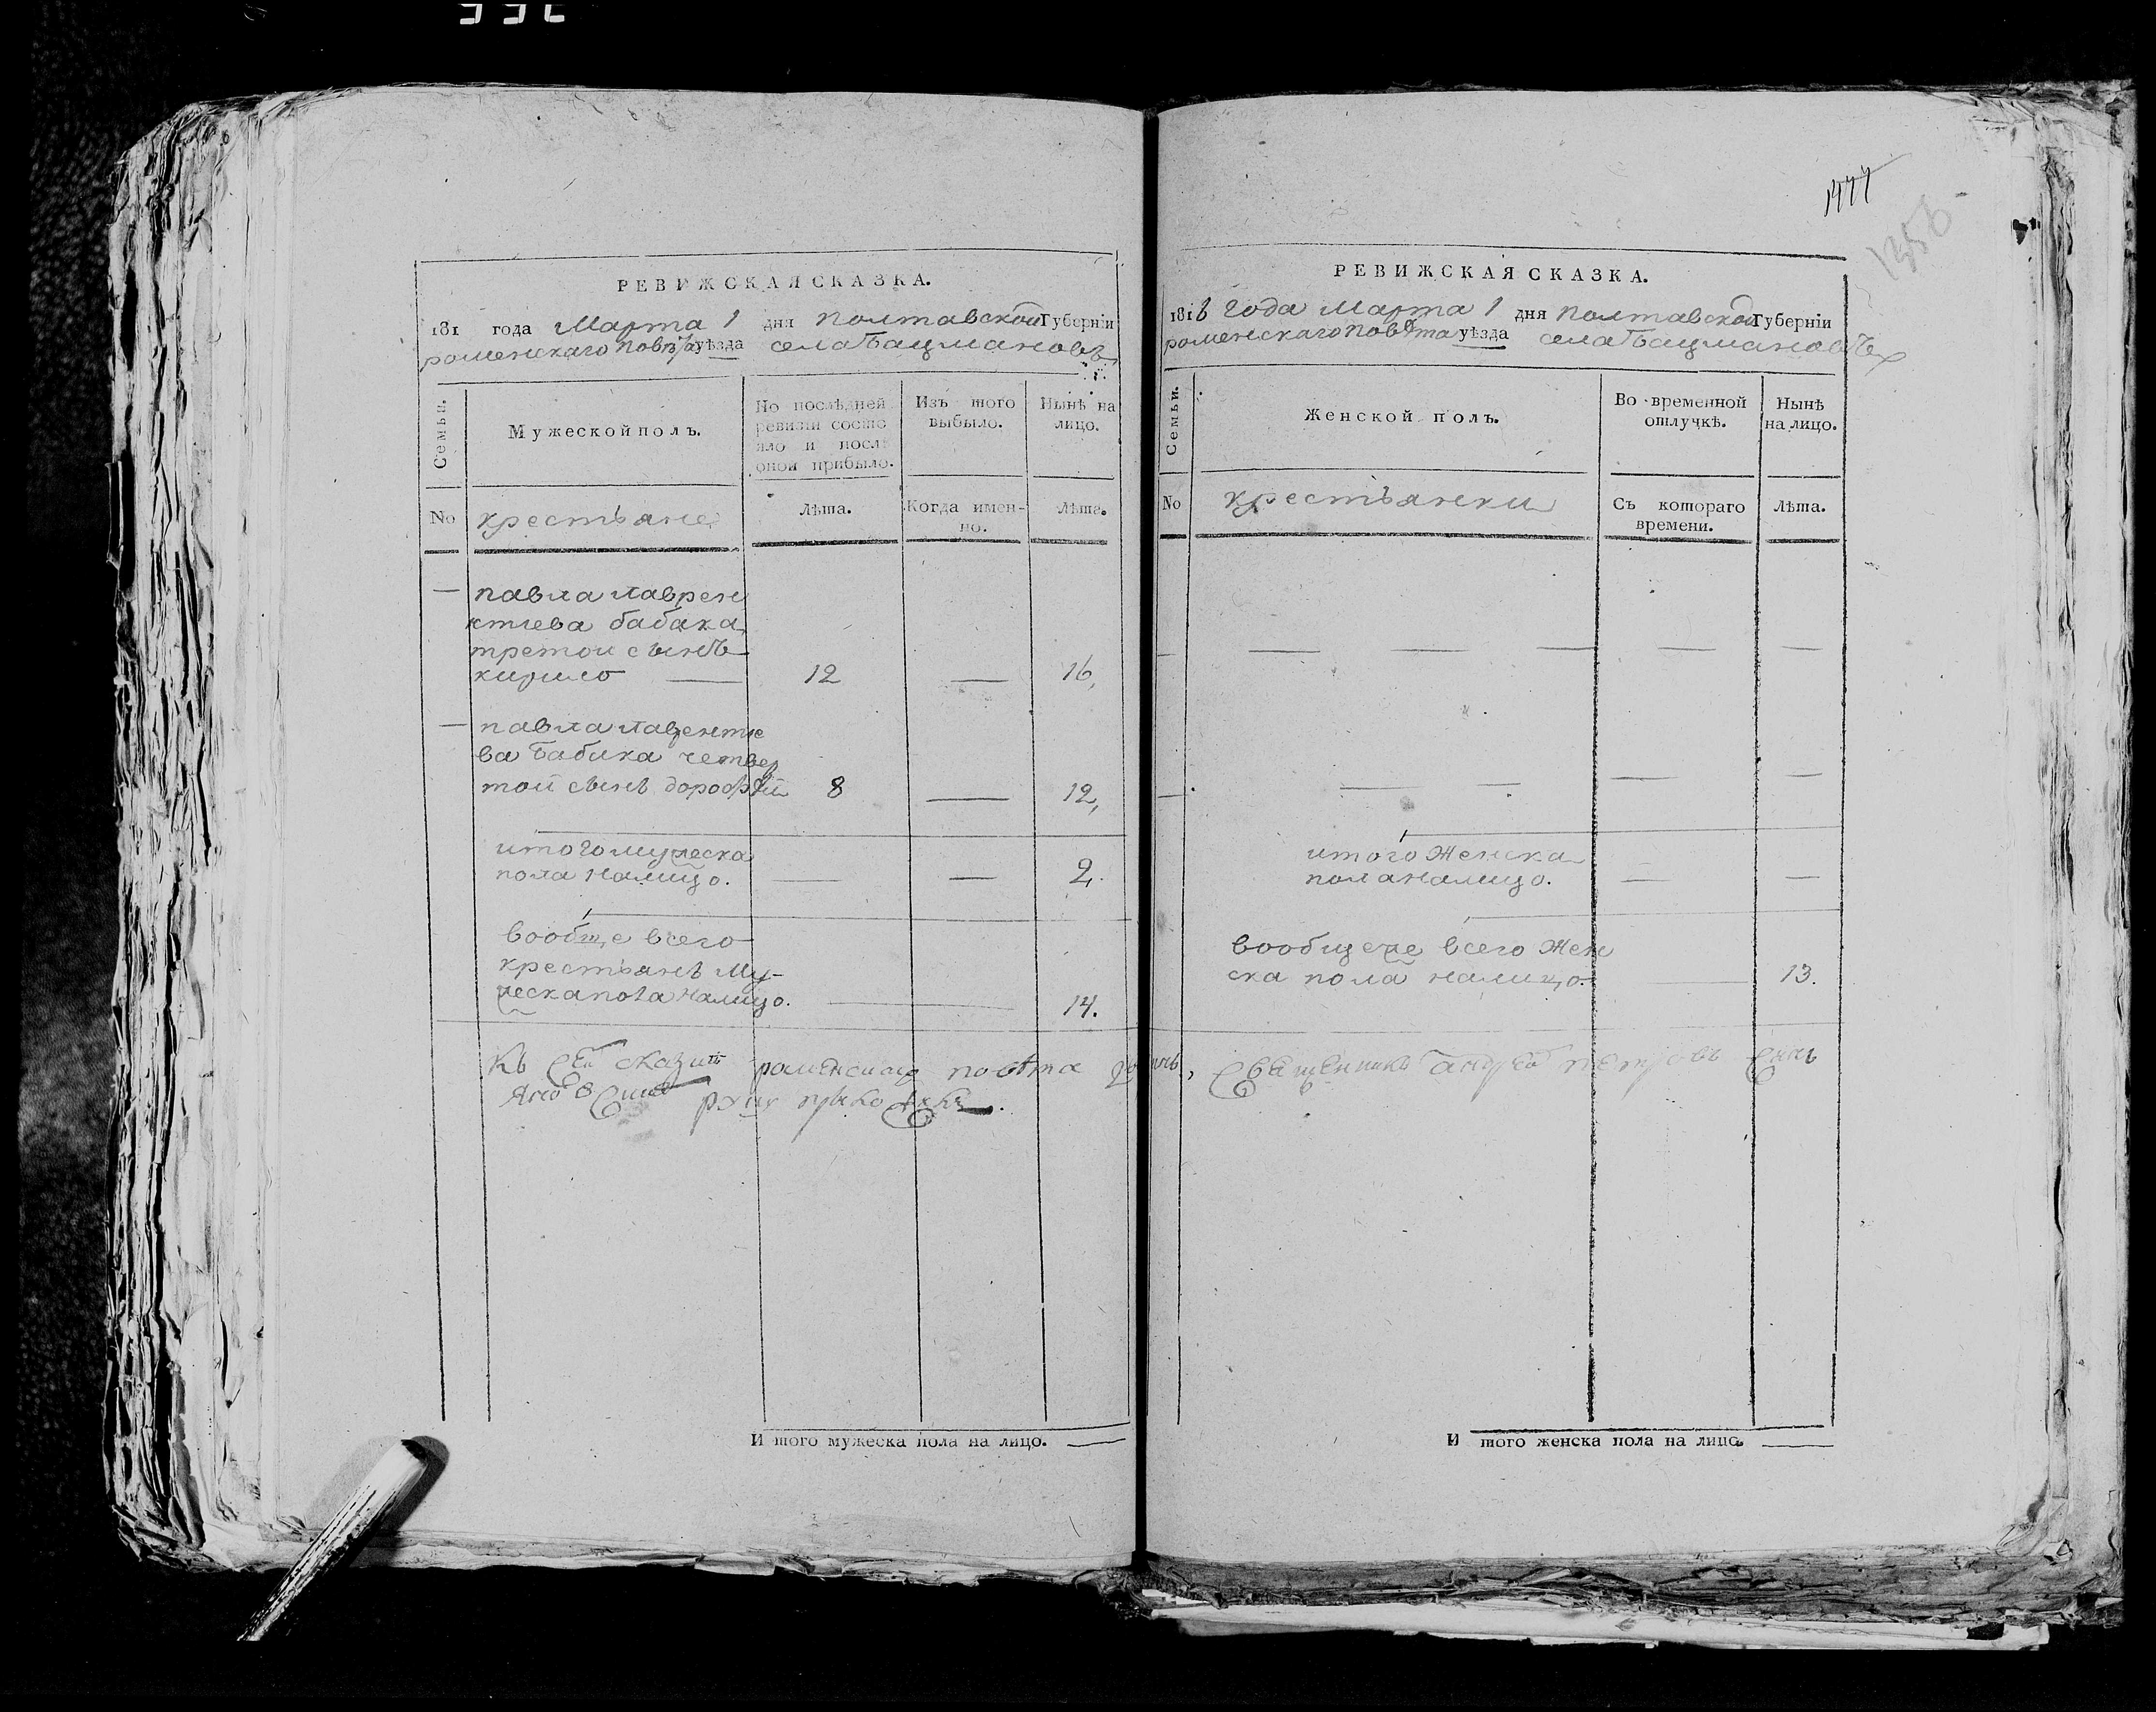 РЕВИЖСКАЯ СКАЗКА.
181 года Марта 1 дня полтавской Губерніи
роменскаго повѣта уѣзда села Бацмановъ
Семьи.
Мужеской полъ.
По послѣдней ревизіи состояло и послѣ оной прибыло.
Изъ того выбыло.
Нынѣ на лицо.
No
крестьяне
Лѣта.
Когда именно.
Лѣта.
— павла лаврен
ктіева бабака
третой сынъ
кирило — 12 — 16,
— павла лаврентіе
ва бабака четвер
той сынъ дорофѣй 8 — 12,
итого мужеска
пола налицо. — — 2,
вообще всего
крестьянъ му-
жеска пола налицо. — 14.
Къ сей сказки роменскаго повѣта
руку приложилъ.
И того мужеска пола на лицо. —
1477
1356
РЕВИЖСКАЯ СКАЗКА.
1816 года Марта 1 дня полтавской Губерніи
роменскаго повѣта уѣзда села Бацмановъ
Семьи.
Женской полъ.
Во временной отлучкѣ.
Нынѣ на лицо.
No
крестьянки
Съ котораго времени.
Лѣта.
— — — — — —
— — — — —
итого женска
пола налицо. — —
вообще же всего жен
ска пола налицо — 13.
священникъ андрей петровъ сынъ
И того женска пола на лицо. —